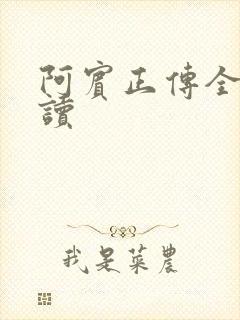 阿賓正傳全
讀
我是菜農